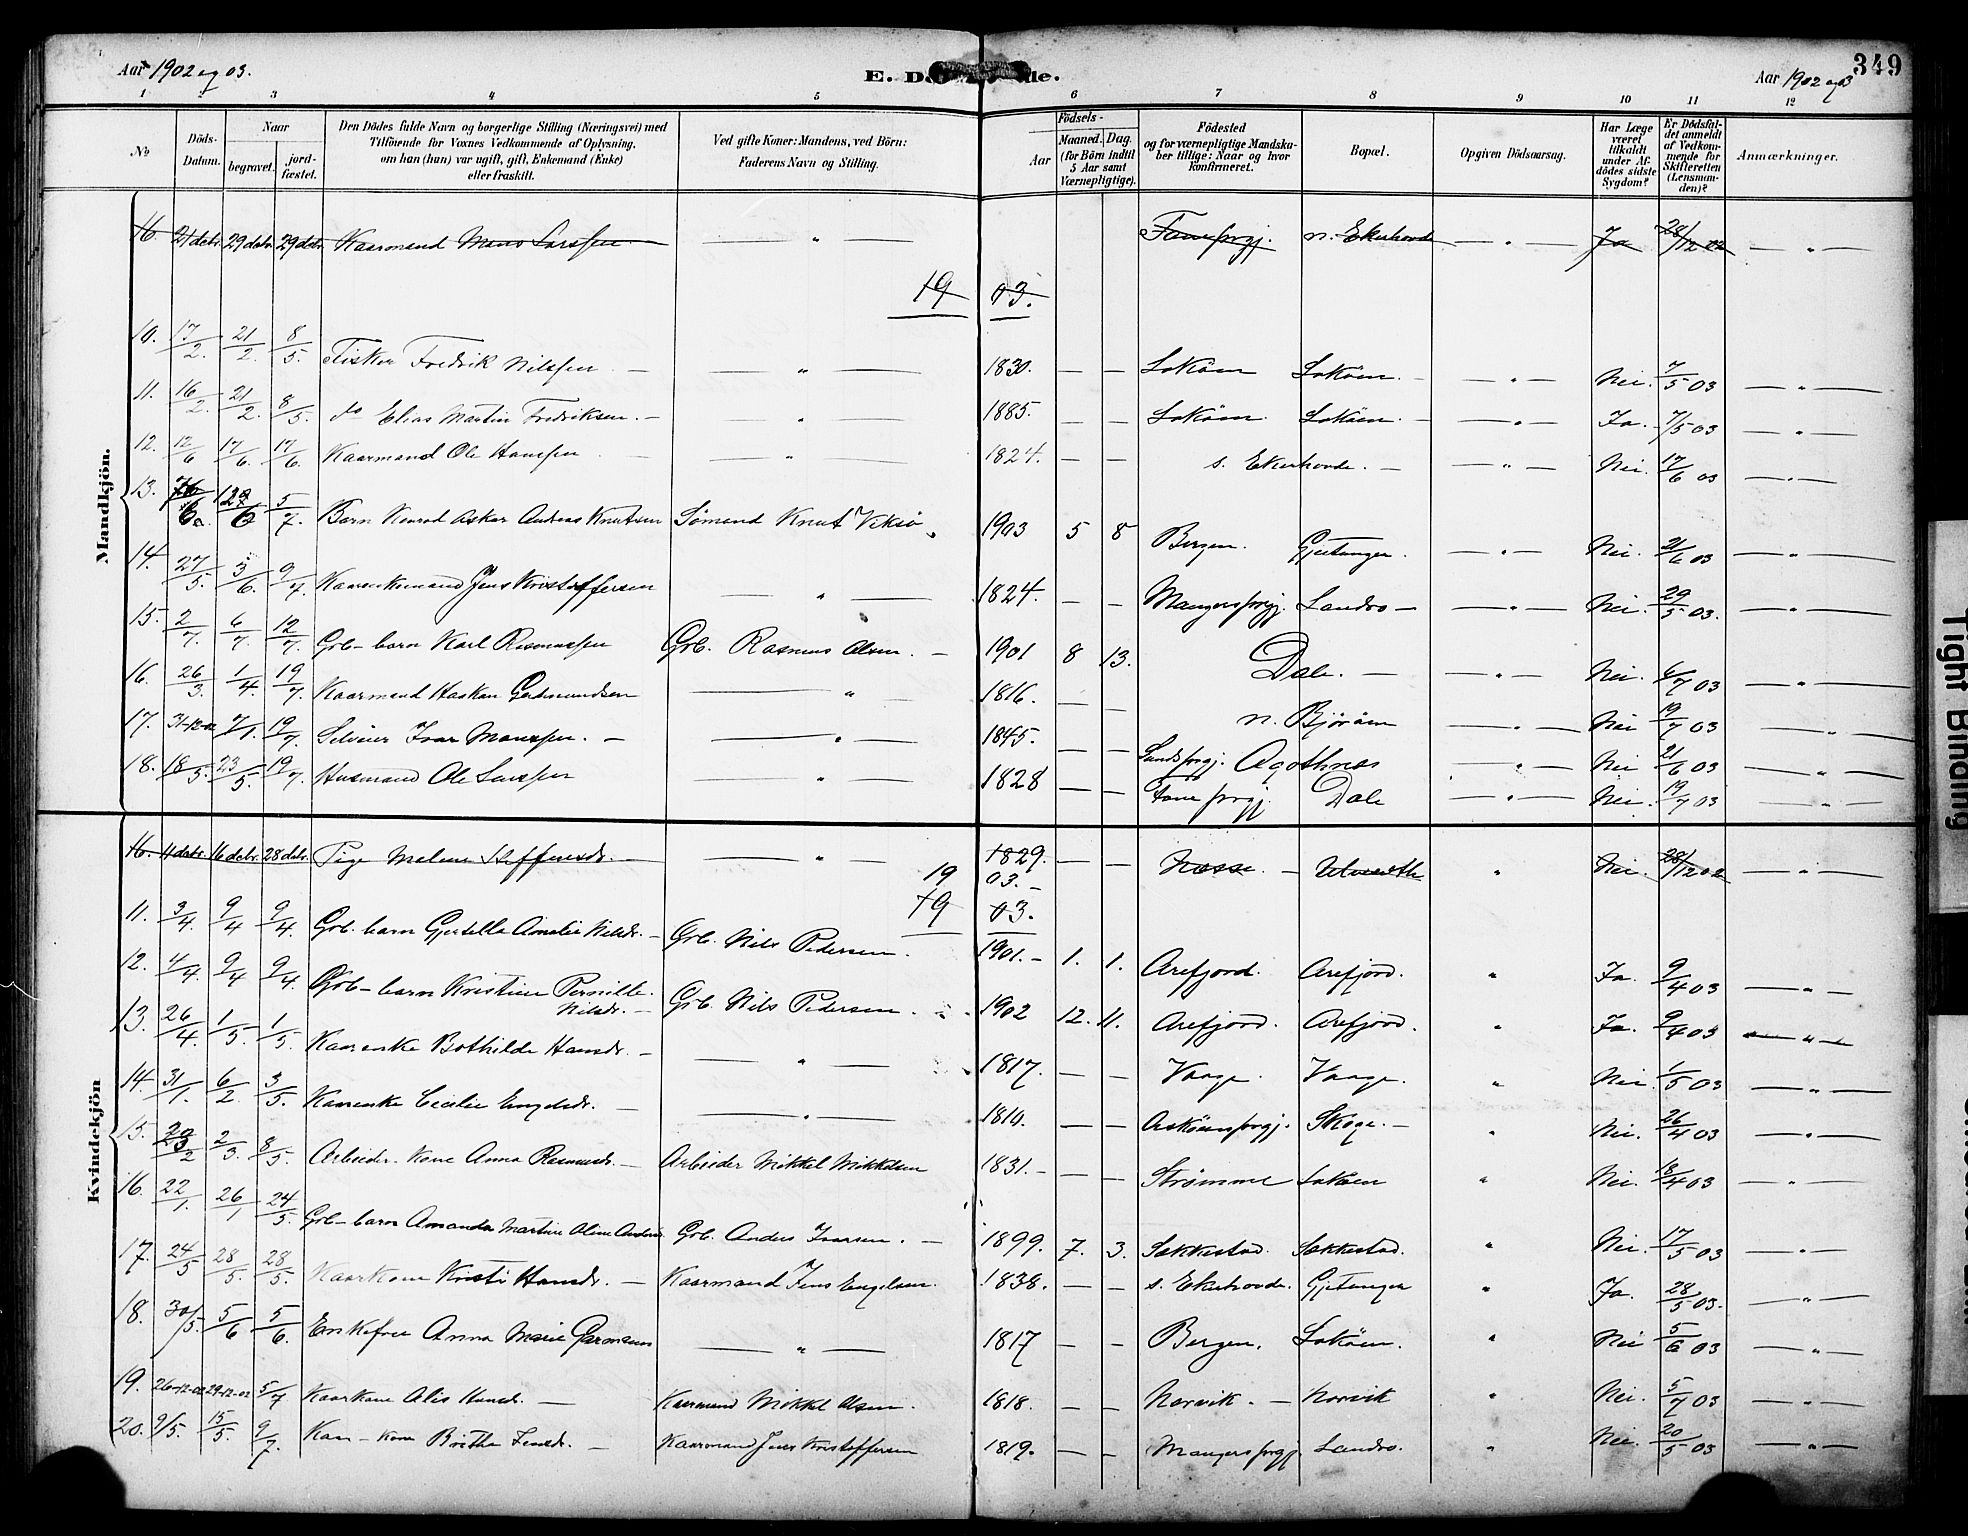 Aar 1902 og 03.
E. De
de.
Aar 1902 og 03
349
1 2 3 4 5 6 7 8 9 10 11 12
No
Döds-Datum.
Naar
begravet.
jordfæstet.
Den Dödes fulde Navn og borgerlige Stilling (Næringsvei) med Tilföiende for Voxnes Vedkommende af Oplysning, om han (hun) var ugift, gift, Enkemand (Enke) eller fraskilt.
Ved gifte Koner: Mandens, ved Börn: Faderens Navn og Stilling.
Födsels-
Aar
Maaned. Dag.
(for Börn indtil 5 Aar samt Værnepligtige).
Födested og for værnepligtige Mandskaber tillige: Naar og hvor konfirmeret.
Bopæl.
Opgiven Dödsaarsag.
Har Læge været tilkaldt under Afdödes sidste Sygdom?
Er Dödsfaldet anmeldt af Vedkommende for Skifteretten (Lensmanden)?
Anmærkninger.
Mandkjön.
16. 21 debr. 29 debr. 29 debr. Kaarmand Mans Larssen — " — Fane prgj. n. Ekerhovde — " — Ja 28/12 02 — " —
19 03.
10. 17/2. 21/2. 8/5. Fisker Fredrik Nilssen — — " — 1830. — — Loköen Loköen. — " — Nei. 7/5 03 — " —
11. 16/2. 21/2. 8/5. do Elias Martin Fredriksen. — — " — 1885. — — Loköen. Loköen. — " — Ja. 7/5 03 — " —
12. 12/6 17/6. 17/6. Kaarmand Ole Hanssen — — " — 1824. — — s. Ekerhovde. — — " — Nei. 17/6 03 — " —
13. 6 6 5/7. Barn Konrad Askar Andreas Knutsen Sømand Knut Viksø 1903 5 8 Bergen. Gjetanger. — " — Nei. 21/6 03 — " —
14. 27/5. 3/6. 9/7. Kaarenkemand Jens Kristoffersen — " — 1824. — — Mangers prgj. Landro — — " — Nei. 29/5 03. — " —
15. 2/7. 6/7. 12/7. Grb-barn Karl Rasmussen Grb. Rasmus Olsen. — 1901 8 13. Dale. — — " — Nei. 6/7 03 — " —
16. 26/3. 1/4. 19/7. Kaarmand Haakon Gudmundsen — " — 1816. — — n. Bjøröen — " — Nei 19/7 03 — " —
17. 31-12-02 7/1. 19/7. Selveier Ivar Monssen. — — " — 1845. — — Sunds prgj. Agothnes — " — Nei 21/6 03 — " —
18. 18/5. 23/5. 19/7. Husmand Ole Larssen — " — 1828 — — Fane prgj. Dale — " — Nei. 19/7 03 — " —
Kvindekjön
16. 11 debr. 16 debr. 28 debr. Pige Malene Steffensdr. — — " — 1829. — — Næsse. — " Nei. 28/12 02 — " —
19 03. —
19 03.
11. 3/4. 9/4 9/4. Grb. barn Gjertelle Amalie Nilsdr. — Grb. Nils Pedersen. 1901. — 1. 1. Arefjord. Arefjord. " Ja. 9/4 03 — " —
12. 4/4. 9/4 9/4. Grb-barn Kristine Pernille Nilsdr. — Grb. Nils Pedersen. 1902 12. 11. Arefjord. Arefjord. " Ja. 9/4 03 — " —
13. 26/4. 1/5. 1/5. Kaarenke Bothilde Hansdr. — — " — 1817. — — Vaage. Vaage. " Nei. 1/5 03 — " —
14. 31/1. 6/2. 3/5. Kaarenke Cecilie Engelsdr. — — " — 1810. — — Asköens prgj. Skoge. — " Nei. 26/4 03 — " —
15. 2 2/3. 8/5. Arbeider-kone Anna Rasmusdr. — Arbeider Mikkel Mikkelsen 1831. — — — Strømme Loköen " Nei. 18/4 03 — " —
16. 22/1. 26/1 24/5. Grb-barn Amanda Martine Oline Andersdr. Grb. Anders Ivarsen. — 1899. 7. 3. Søkkestad. Søkkestad. " Nei. 17/5 03 — " —
17. 24/5 28/5. 28/5. Kaarkone Kristi Hansdr. — Kaarmand Jens Engelsen. 1838. — — s. Ekerhovde. Gjetanger " Ja. 28/5 03. — " —
18. 30/5. 5/6 5/6. Enkefrue Anna Marie Garmann — " — 1817 — — Bergen. Loköen. " Nei 5/6 03 — " —
19. 26-12-02 29-12-02 5/7 Kaarkone Alis Hansdr. — Kaarmand Mikkel Olsen. 1818. — — Norvik. — Norvik " Nei. 5/7 03 — " —
20. 9/5. 15/5. 9/7. Kaar-kone Brithe Jensdr. — Kaarmand Jens Kristoffersen 1819. — — Mangers prgj. Landro. " Nei. 20/5 03 — " —
Tight Binding